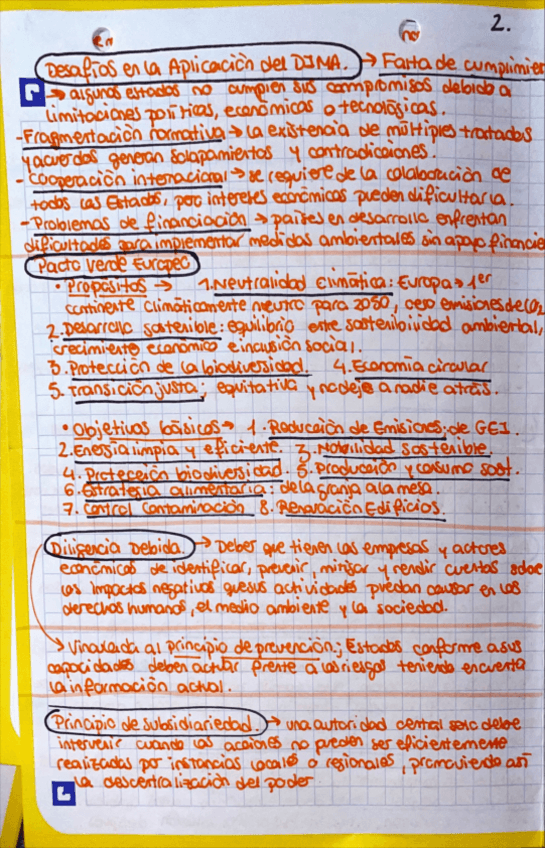 2.
Desafíos en la Aplicación del DIMA. → Falta de cumplimien
→ algunos estados no cumplen sus compromisos debido a
limitaciones políticas, económicas o tecnológicas.
-Fragmentación normativa → la existencia de múltiples tratados
y acuerdos generan solapamientos y contradicciones.
- Cooperación internacional → se requiere de la colaboración de
todos los Estados, pero intereses económicos pueden dificultarla.
-Problemas de financiación → países en desarrollo enfrentan
dificultades para implementar medidas ambientales sin apoyo financie
Pacto Verde Europeo
• Propósitos → 1. Neutralidad climática: Europa → 1er
continente climáticamente neutro para 2050, cero emisiones de CO2
2. Desarrollo sostenible: equilibrio entre sostenibilidad ambiental,
crecimiento económico e inclusión social.
3. Protección de la biodiversidad 4. Economía circular
5. Transición justa; equitativa y no deje a nadie atrás.
• Objetivos básicos → 1. Reducción de Emisiones; de GEI.
2. Energía limpia y eficiente. 3. Mobilidad sostenible.
4. Protección biodiversidad. 5. Producción y consumo sost.
6. Estrategia alimentaria: de la granja a la mesa.
7. Control Contaminación 8. Renovación Edificios.
Diligencia Debida. → Deber que tienen las empresas y actores
económicos de identificar, prevenir, mitigar y rendir cuentas sobre
los impactos negativos que sus actividades puedan causar en los
derechos humanos, el medio ambiente y la sociedad.
→ Vinculada al principio de prevención; Estados conforme a sus
capacidades deben actuar frente a los riesgos teniendo en cuenta
la información actual.
Principio de subsidiariedad. → una autoridad central solo debe
intervenir cuando las acciones no pueden ser eficientemente
realizadas por instancias locales o regionales, promoviendo así
la descentralización del poder